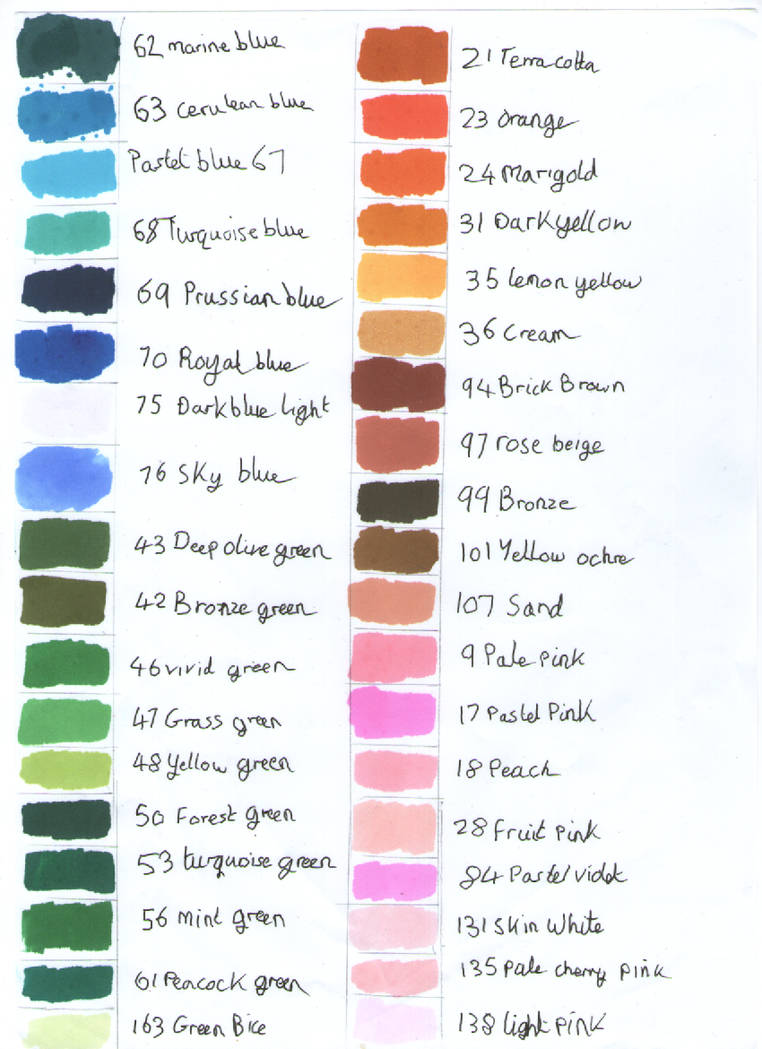 62 marine blue
63 cerulean blue
Pastel blue 67
68 Turquoise blue
69 Prussian blue
70 Royal blue
75 Dark blue light
76 Sky blue
43 Deep olive green
42 Bronze green
46 vivid green
47 Grass green
48 Yellow green
50 Forest green
53 turquoise green
56 mint green
61 Peacock green
163 Green Bice
21 Terracotta
23 orange
24 Marigold
31 Dark yellow
35 lemon yellow
36 Cream
94 Brick Brown
97 rose beige
99 Bronze
101 Yellow ochre
107 Sand
9 Pale pink
17 Pastel Pink
18 Peach
28 Fruit pink
84 Pastel violet
131 Skin White
135 Pale cherry pink
138 light pink